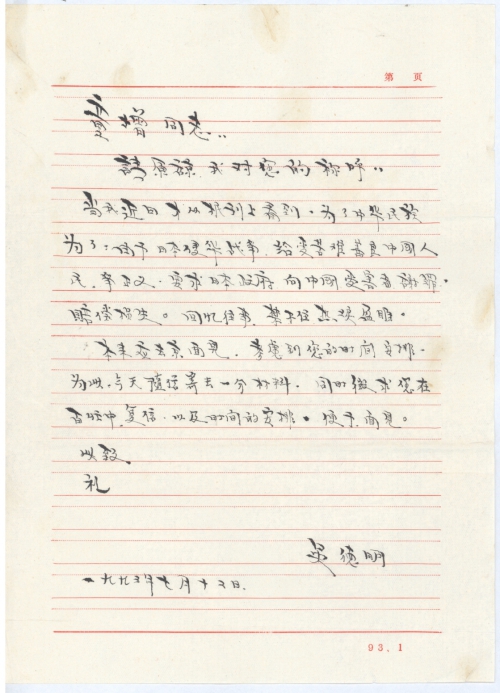 第 页
童增同志：
请原谅我对您的称呼：
当我近日才从报刊上看到，为了中华民族
为了：由于日本侵华战争，给受苦难者中国人
民，要求日本政府向中国受害者谢罪。
赔偿损失。回忆往事，禁不住热泪盈眶。
本来要去京面见，考虑到您的时间安排。
为此，今天随信寄去一分材料。同时征求您在
百忙中，复信，以及时间的安排。便于面见。
此致
礼
吴德明
一九九三年七月十三日.
93.1